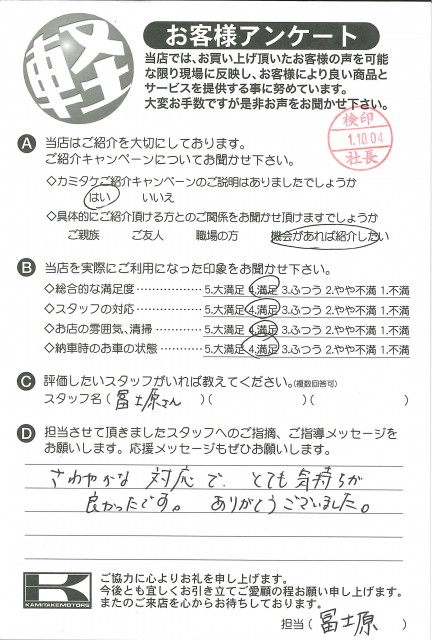 軽
お客様アンケート
当店では、お買い上げ頂いたお客様の声を可能
な限り現場に反映し、お客様により良い商品と
サービスを提供する事に努めています。
大変お手数ですが是非お声をお聞かせ下さい。
検印
1.10.04
社長
A 当店はご紹介を大切にしております。
ご紹介キャンペーンについてお聞かせ下さい。
◇カミタケご紹介キャンペーンのご説明はありましたでしょうか
はい いいえ
◇具体的にご紹介頂ける方とのご関係をお聞かせ頂けますでしょうか
ご親族 ご友人 職場の方 機会があれば紹介したい
B 当店を実際にご利用になった印象をお聞かせ下さい。
◇総合的な満足度 ・・・・・・・・・・・・・・ 5.大満足 4.満足 3.ふつう 2.やや不満 1.不満
◇スタッフの対応 ・・・・・・・・・・・・・・ 5.大満足 4.満足 3.ふつう 2.やや不満 1.不満
◇お店の雰囲気、清掃 ・・・・・・・・・・ 5.大満足 4.満足 3.ふつう 2.やや不満 1.不満
◇納車時のお車の状態 ・・・・・・・・・・ 5.大満足 4.満足 3.ふつう 2.やや不満 1.不満
C 評価したいスタッフがいれば教えてください。(複数回答可)
スタッフ名 ( 冨士原さん )( )( )
D 担当させて頂きましたスタッフへのご指摘、ご指導メッセージを
お願いします。応援メッセージもぜひお願いします。
さわやかな 対応で、とても気持ちが
良かったです。 ありがとうございました。
K
KAMITAKEMOTORS
ご協力に心よりお礼を申し上げます。
今後とも宜しくお引き立てご愛顧の程お願い申し上げます。
またのご来店を心からお待ちしております。
担当 ( 冨士原 )